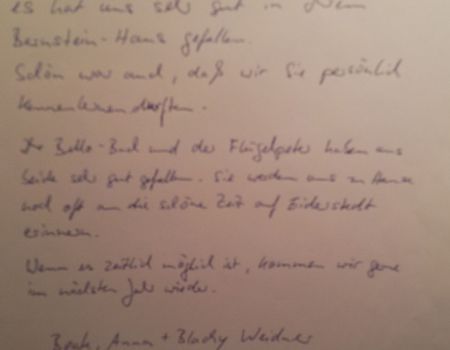 es hat uns sehr gut in Ihrem
Bernstein-Haus gefallen.
Schön war auch, daß wir Sie persönlich
kennenlernen durften.
Ihr Bello-Buch und der Flügelpeter haben uns
beide sehr gut gefallen. Sie werden uns zu Hause
noch oft an die schöne Zeit auf Eiderstedt
erinnern.
Wenn es zeitlich möglich ist, kommen wir gerne
im nächsten Jahr wieder.
Beate, Anna + Blacky Weidner